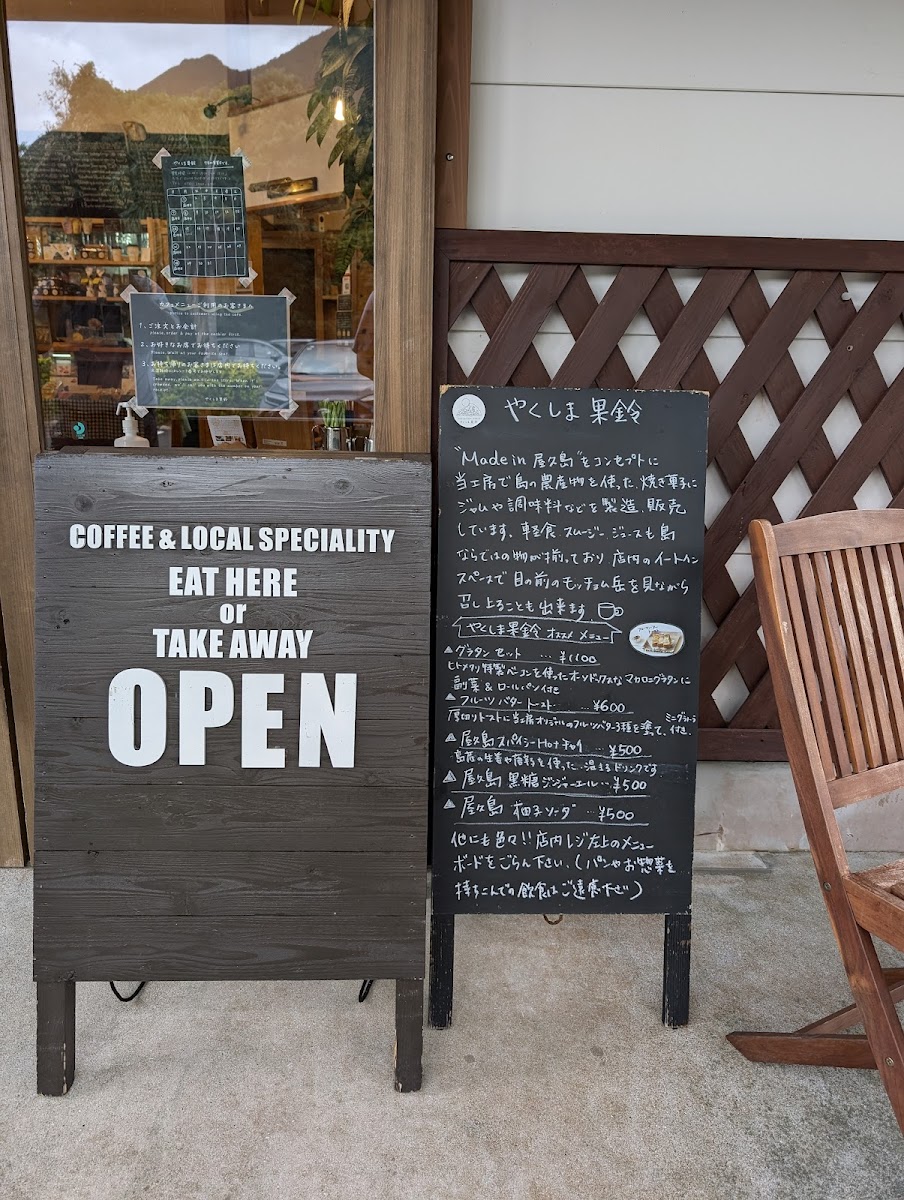 カフェメニューご利用のお客さまへ
1、ご注文とお会計
2、お好きなお席でお待ちください
COFFEE & LOCAL SPECIALITY
EAT HERE
or
TAKE AWAY
OPEN
やくしま果鈴
"Made in 屋久島"をコンセプトに
当工房で島の農産物を使った、焼き菓子に
ジャムや調味料などを製造、販売
しています。軽食、スムージー、ジュースも島
ならではの物が揃っており、店内のイートイン
スペースで目の前のモッチョム岳を見ながら
召し上ることも出来ます
やくしま果鈴 オススメ メニュー
▲グラタン セット … ¥1100
ヒトメクリ特製ベーコンを使ったオーソドックスなマカロニグラタンに
副菜&ロールパン付き
▲フルーツバタートースト … ¥600
厚切りトーストに当工房オリジナルのフルーツバター3種を塗って、ミニグラノーラ付き.
▲屋久島スパイシーHotチャイ … ¥500
島産の生姜や香料を使った、温まるドリンクです
▲屋久島 黒糖ジンジャーエール … ¥500
▲屋久島 柚子ソーダ … ¥500
他にも色々!!店内レジ左上のメニュー
ボードをごらん下さい。(パンやお惣菜を
持ちこんでの飲食はご遠慮下さい)